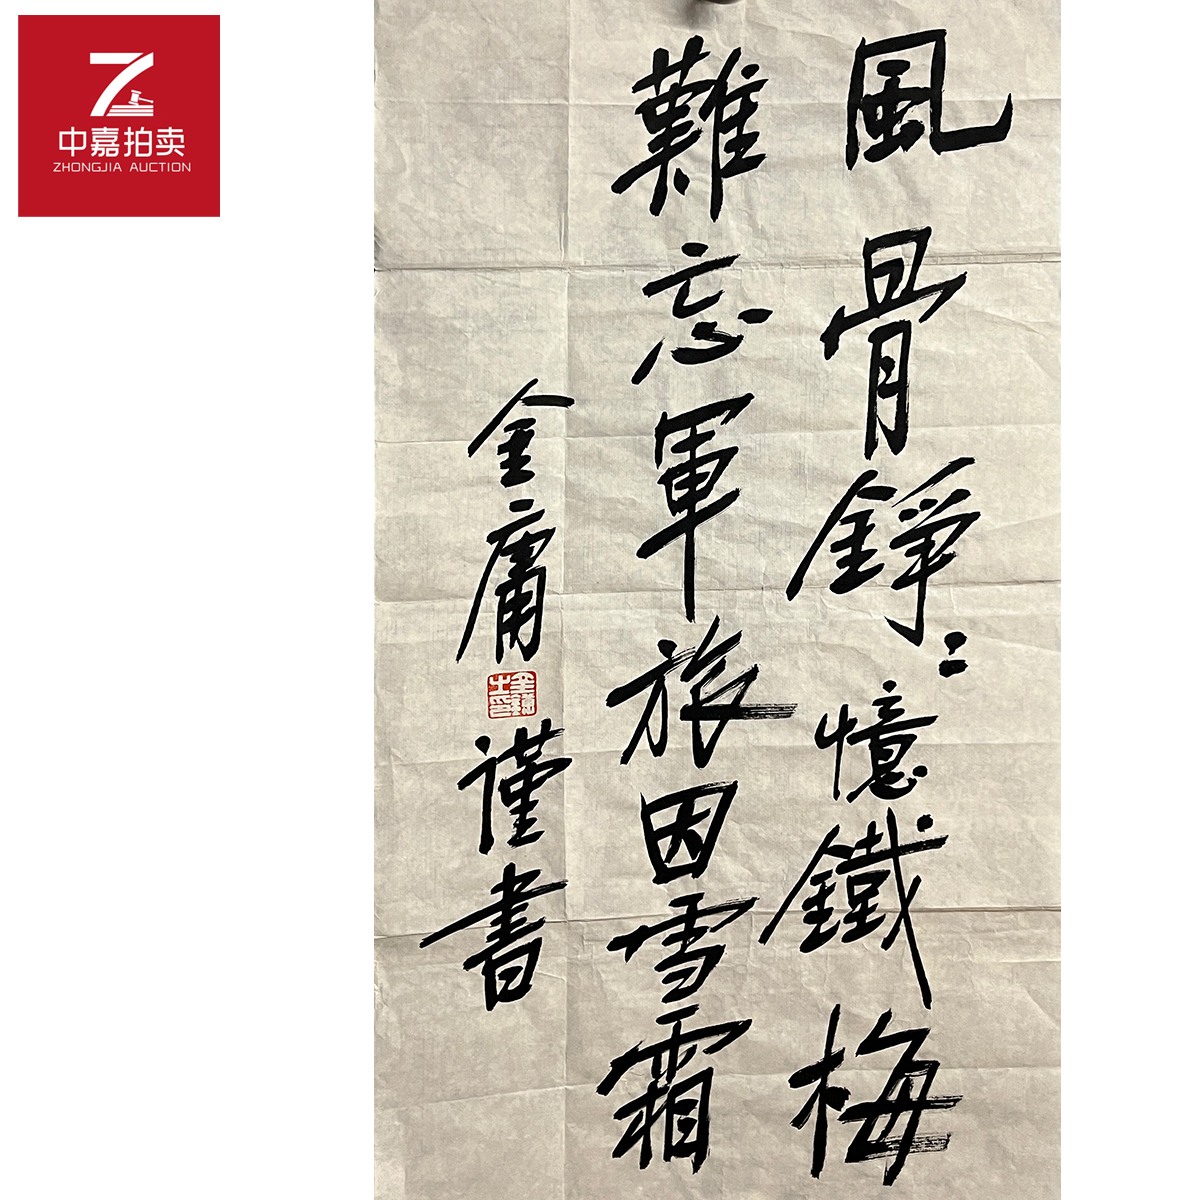 中嘉拍卖
ZHONGJIA AUCTION
風骨錚〻憶鐵梅
難忘軍旅因雪霜
金庸
謹書